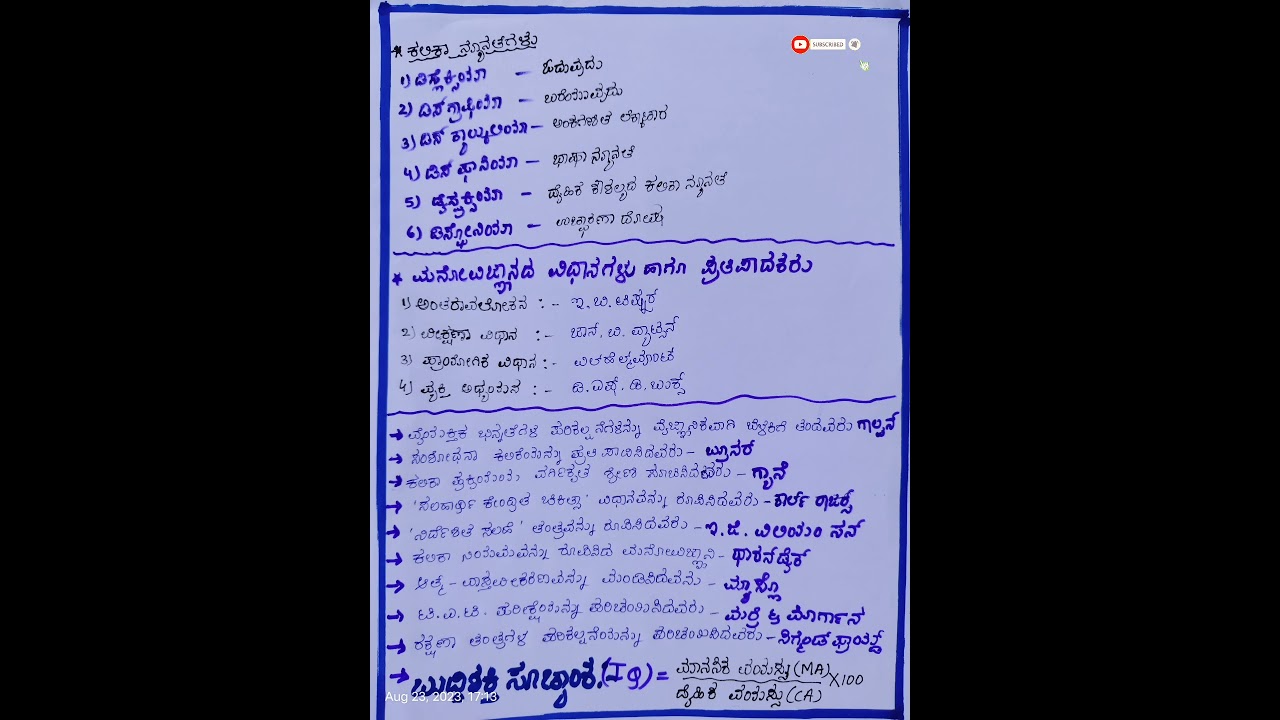 * ಕಲಿಕಾ ನ್ಯೂನತೆಗಳು
SUBSCRIBED
1) ಡಿಸ್ಲೆಕ್ಸಿಯಾ – ಓದುವುದು
2) ಡಿಸ್ ಗ್ರಾಫಿಯಾ – ಬರೆಯುವುದು
3) ಡಿಸ್ ಕ್ಯಾಲ್ಕುಲಿಯಾ – ಅಂಕಗಣಿತ ಲೆಕ್ಕಾಚಾರ
4) ಡಿಸ್ ಫಾಸಿಯಾ – ಭಾಷಾ ನ್ಯೂನತೆ
5) ಡೈಸ್ಪ್ರಕ್ಸಿಯಾ – ದೈಹಿಕ ಕೌಶಲ್ಯದ ಕಲಿಕಾ ನ್ಯೂನತೆ
6) ಡಿಸ್ಫೋನಿಯಾ – ಉಚ್ಛಾರಣಾ ದೋಷ
* ಮನೋವಿಜ್ಞಾನದ ವಿಧಾನಗಳು ಹಾಗೂ ಪ್ರತಿಪಾದಕರು
1) ಅಂತರಾವಲೋಕನ :- ಇ. ಬಿ. ಟಿಷ್ನೆರ್
2) ವೀಕ್ಷಣಾ ವಿಧಾನ :- ಜಾನ್. ಬಿ. ವ್ಯಾಟ್ಸನ್
3) ಪ್ರಾಯೋಗಿಕ ವಿಧಾನ :- ವಿಲ್‌ಹೆಲ್ಮವೊಂಟ್
4) ವ್ಯಕ್ತಿ ಅಧ್ಯಯನ :- ಡಿ. ಎಫ್. ಡಿ. ಬುಕ್ಸ್
→ ವೈಯಕ್ತಿಕ ಭಿನ್ನತೆಗಳ ಪರಿಕಲ್ಪನೆಗಳನ್ನು ವೈಜ್ಞಾನಿಕವಾಗಿ ಬೆಳಕಿಗೆ ತಂದವರು ಗಾಲ್ಟನ್
→ ಸಂಶೋಧನಾ ಕಲಿಕೆಯನ್ನು ಪ್ರತಿ ಪಾದಿಸಿದವರು – ಬ್ರೂನರ್
→ ಕಲಿಕಾ ಪ್ರಕ್ರಿಯೆಯ ವರ್ಗೀಕೃತ ಶ್ರೇಣಿ ಸೂಚಿಸಿದವರು – ಗ್ಯಾನೆ
→ 'ಸಂದಾರ್ಥಿ ಕೇಂದ್ರಿತ ಚಿಕಿತ್ಸಾ' ವಿಧಾನವನ್ನು ರೂಪಿಸಿದವರು – ಕಾರ್ಲ್ ರಾಜರ್ಸ್
→ 'ನಿರ್ದೇಶಿತ ಸಲಹೆ' ತಂತ್ರವನ್ನು ರೂಪಿಸಿದವರು – ಇ. ಜಿ. ವಿಲಿಯಂ ಸನ್
→ ಕಲಿಕಾ ನಿಯಮವನ್ನು ರೂಪಿಸಿದ ಮನೋವಿಜ್ಞಾನಿ – ಥಾರ್ನಡೈಕ್
→ ಆತ್ಮ – ವಾಸ್ತವೀಕರಣವನ್ನು ಮಂಡಿಸಿದವನು – ಮ್ಯಾಸ್ಲೊ
→ ಟಿ. ಎ. ಟಿ. ಪರೀಕ್ಷೆಯನ್ನು ಪರಿಚಯಿಸಿದವರು – ಮರ್ರೆ & ಮೋರ್ಗಾನ್
→ ರಕ್ಷಣಾ ತಂತ್ರಗಳ ಪರಿಕಲ್ಪನೆಯನ್ನು ಪರಿಚಯಿಸಿದವರು – ಸಿಗ್ಮಂಡ್ ಫ್ರಾಯ್ಡ್
→ ಬುದ್ಧಿಶಕ್ತಿ ಸೂಚ್ಯಾಂಕ. (IQ) = ಮಾನಸಿಕ ವಯಸ್ಸು (MA) X100
ದೈಹಿಕ ವಯಸ್ಸು (CA)
Aug 23, 2023, 17:13